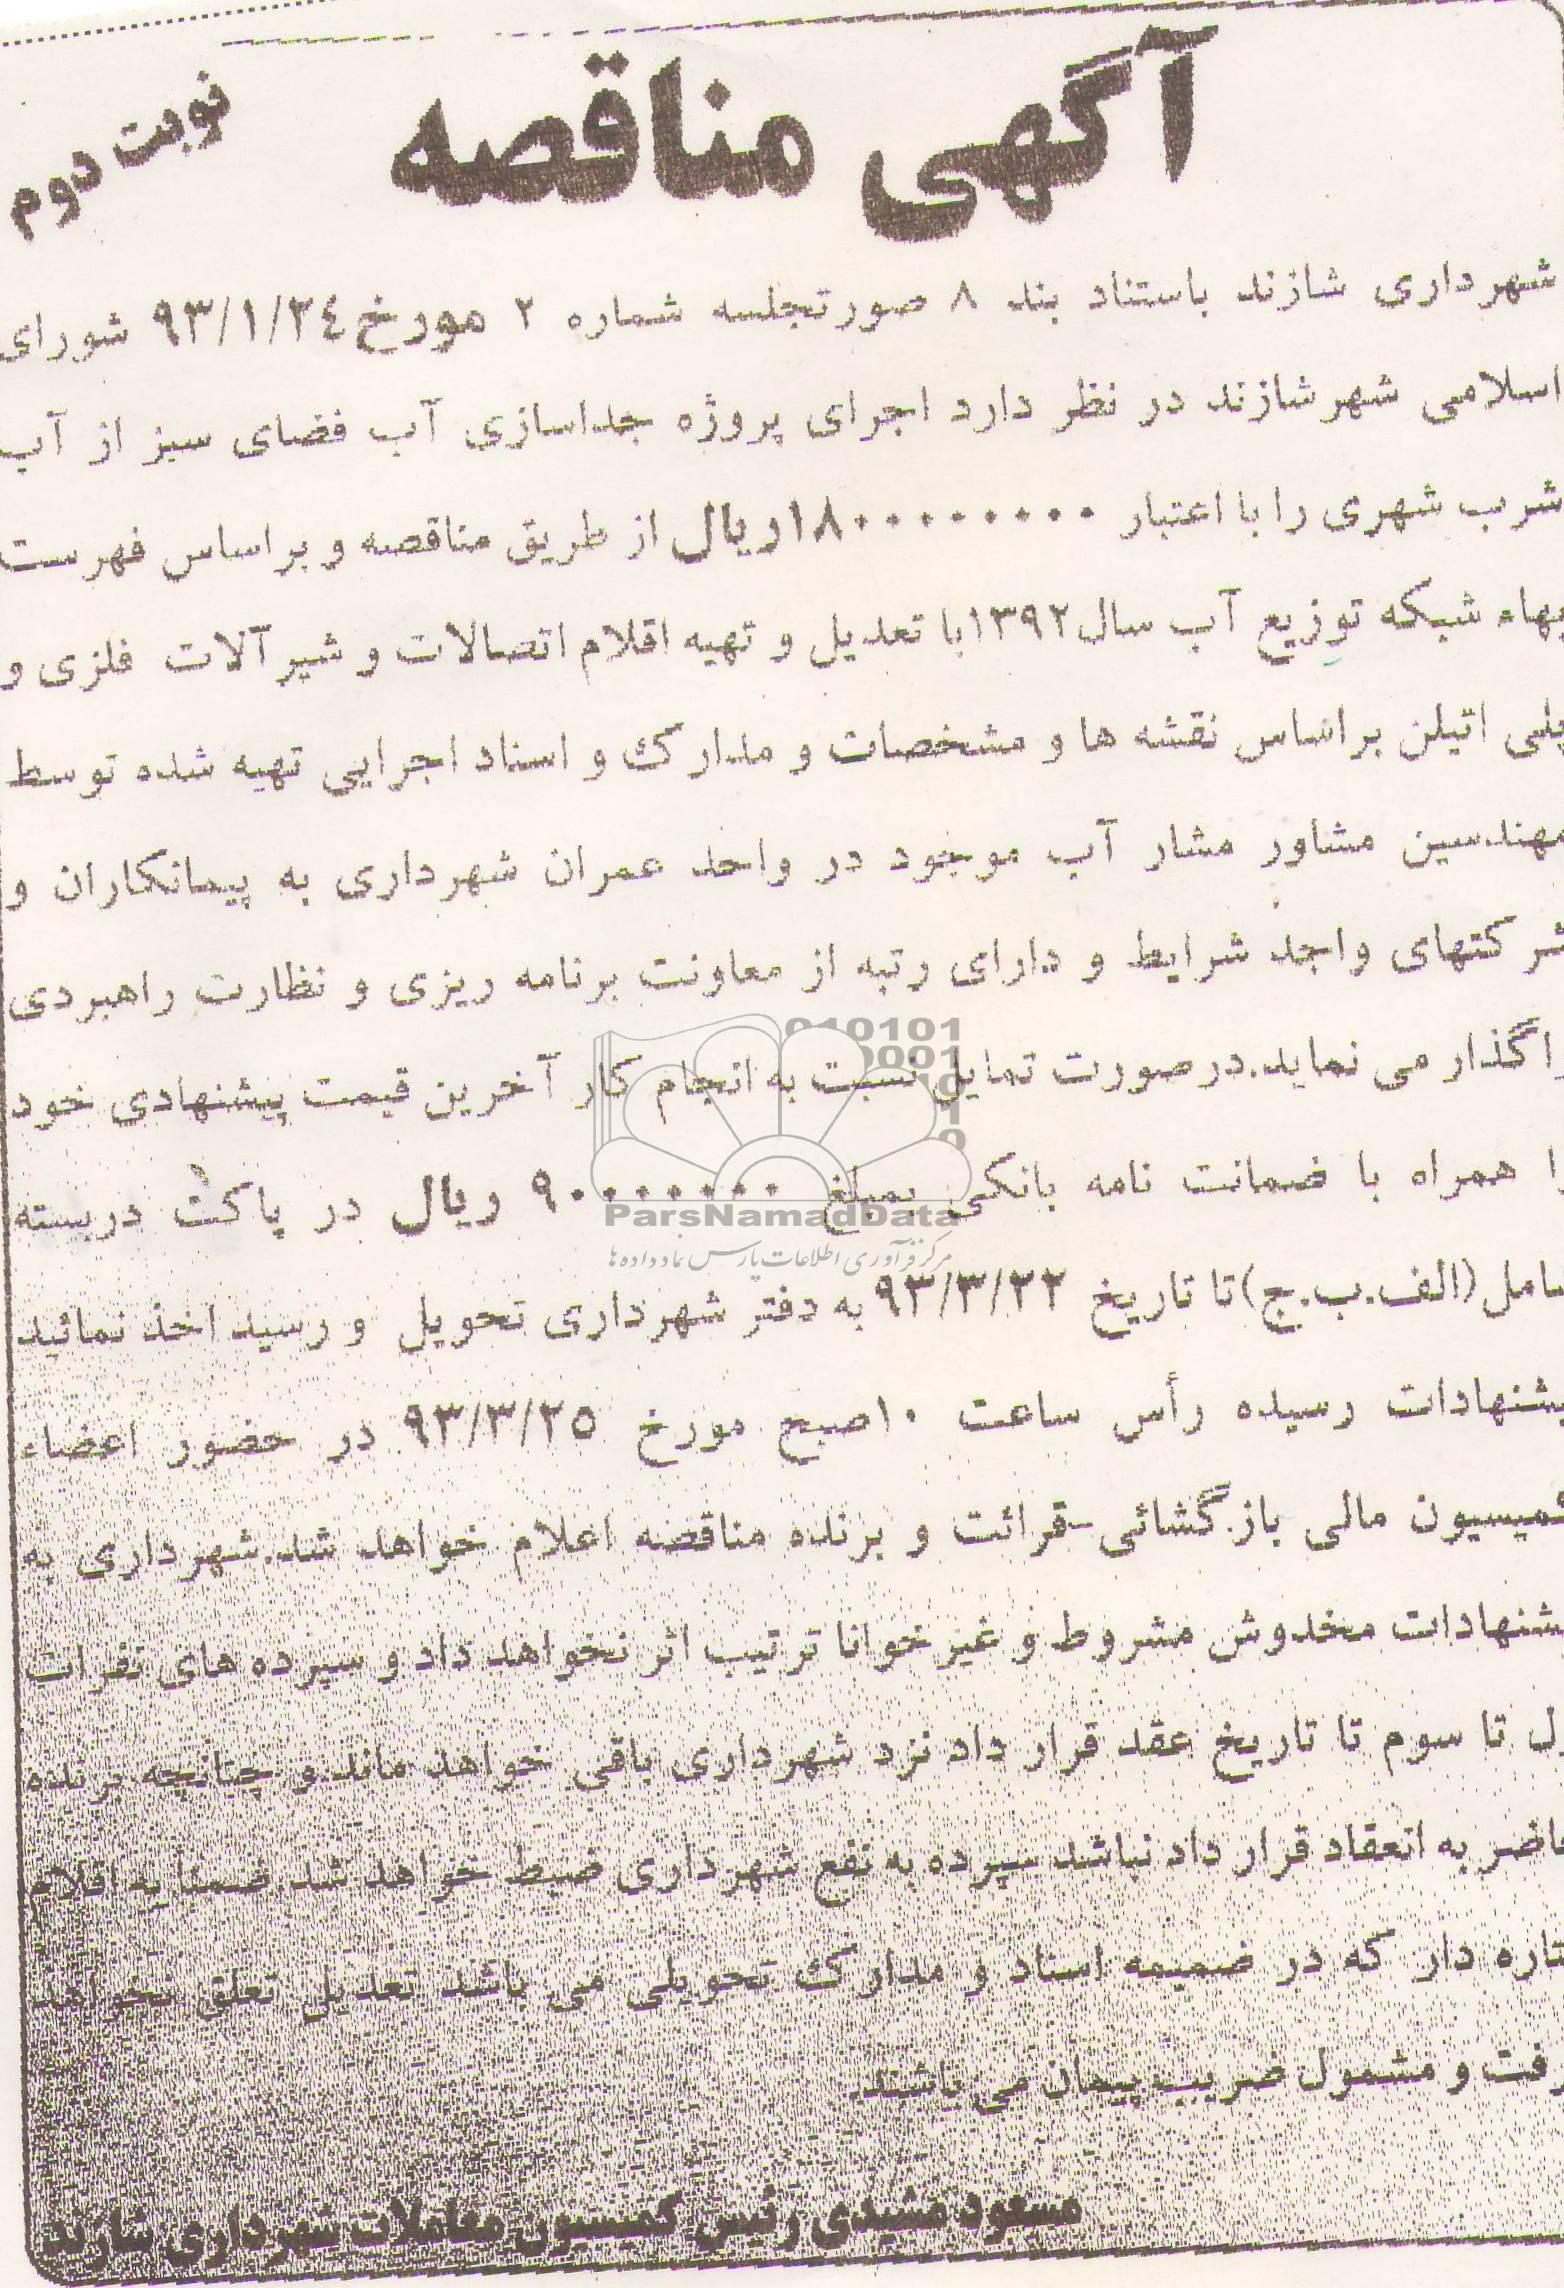 آگهی مناقصه
نوبت دوم
شهرداری شازند باستناد بند ۸ صورتجلسه شماره ۲ مورخ ۹۳/۱/۲٤ شورای
اسلامی شهر شازند در نظر دارد اجرای پروژه جداسازی آب فضای سبز از آب
شرب شهری را با اعتبار ۱۸۰۰۰۰۰۰۰۰۰ ریال از طریق مناقصه و بر اساس فهرست
بهاء شبکه توزیع آب سال ۱۳۹۲ با تعدیل و تهیه اقلام اتصالات و شیر آلات فلزی و
پلی اتیلن بر اساس نقشه ها و مشخصات و مدارک و اسناد اجرایی تهیه شده توسط
مهندسین مشاور مشار آب موجود در واحد عمران شهرداری به پیمانکاران و
شرکتهای واجد شرایط و دارای رتبه از معاونت برنامه ریزی و نظارت راهبردی
اگذار می نماید. در صورت تمایل نسبت به انجام کار آخرین قیمت پیشنهادی خود
را همراه با ضمانت نامه بانکی بمبلغ ۹۰۰۰۰۰۰۰۰ ریال در پاکت دربسته
امل (الف.ب.ج) تا تاریخ ۹۳/۳/۲۲ به دفتر شهرداری تحویل و رسید اخذ نمائید
شنهادات رسیده رأس ساعت ۱۰ صبح مورخ ۹۳/۳/۲٥ در حضور اعضاء
کمیسیون مالی باز گشائی-قرائت و برنده مناقصه اعلام خواهد شد. شهرداری به
شنهادات مخدوش مشروط و غیر خوانا ترتیب اثر نخواهد داد و سپرده های نفرات
ل تا سوم تا تاریخ عقد قرار داد نزد شهرداری باقی خواهد ماند. و چنانچه برنده
اضر به انعقاد قرار داد نباشد سپرده به نفع شهرداری ضبط خواهد شد. ضمنا به اقلام
تاره دار که در ضمیمه اسناد و مدارک تحویلی می باشد تعدیل تعلق نخواهد
رفت و مشمول ضریب پیمان می باشند.
مسعود مشیدی رئیس کمیسیون معاملات شهرداری شازند
010101
0001
ParsNamadData
مرکز فرآوری اطلاعات پارس نماد داده ها